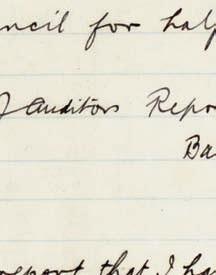 ncil for half
Auditors Repor
Ba
report that I ha